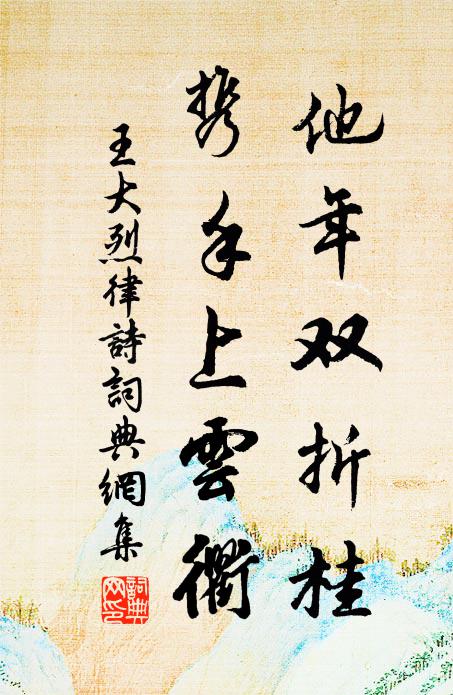 他年双折桂
携手上雲衢
王大烈律詩詞典網集
詞典網印